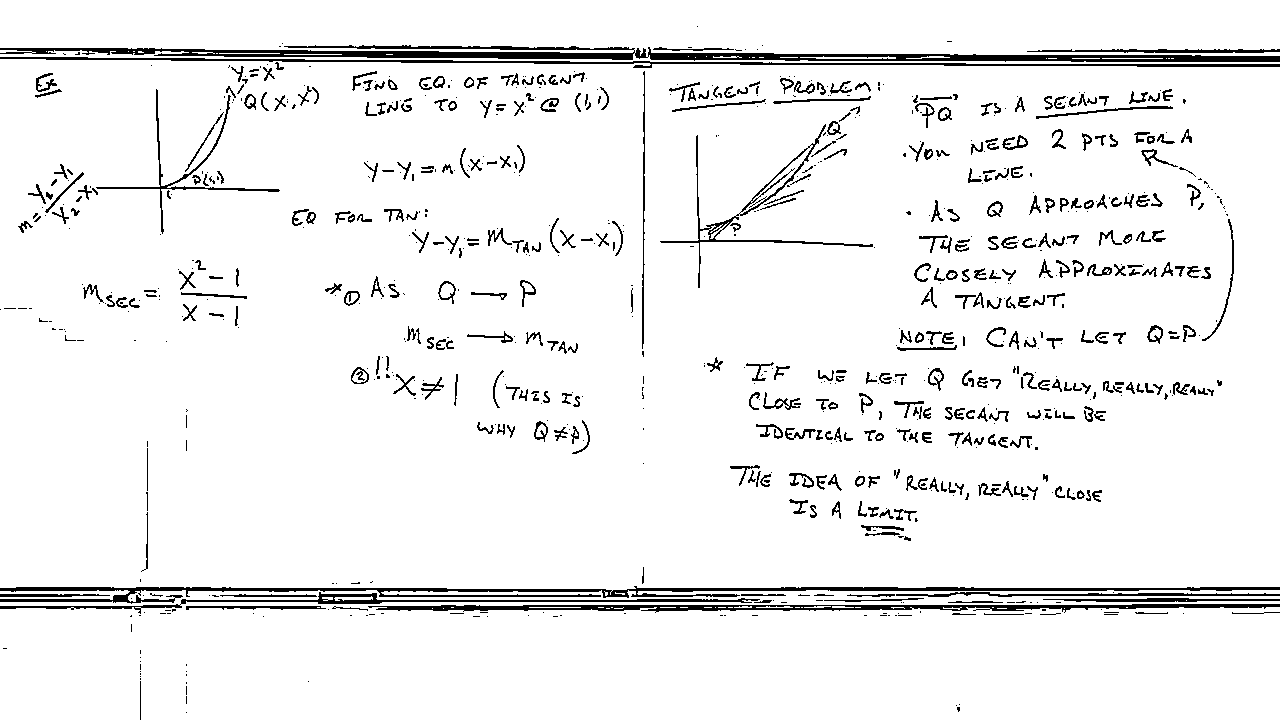 Ex
Y=X²
Q(X,X²)
P(1,1)
1
m = Y₂-Y₁/X₂-X₁
m_SEC = X²-1/X-1
FIND EQ. OF TANGENT
LINE TO Y=X² @ (1,1)
Y-Y₁=m(X-X₁)
EQ FOR TAN:
Y-Y₁=m_TAN(X-X₁)
* ① AS Q → P
m_SEC → m_TAN
② !! X≠1 (THIS IS
WHY Q≠P)
TANGENT PROBLEM:
Q
P
"PQ" IS A SECANT LINE.
· YOU NEED 2 PTS FOR A
LINE.
· AS Q APPROACHES P,
THE SECANT MORE
CLOSELY APPROXIMATES
A TANGENT.
NOTE: CAN'T LET Q=P
* IF WE LET Q GET "REALLY, REALLY, REALLY"
CLOSE TO P, THE SECANT WILL BE
IDENTICAL TO THE TANGENT.
THE IDEA OF "REALLY, REALLY" CLOSE
IS A LIMIT.